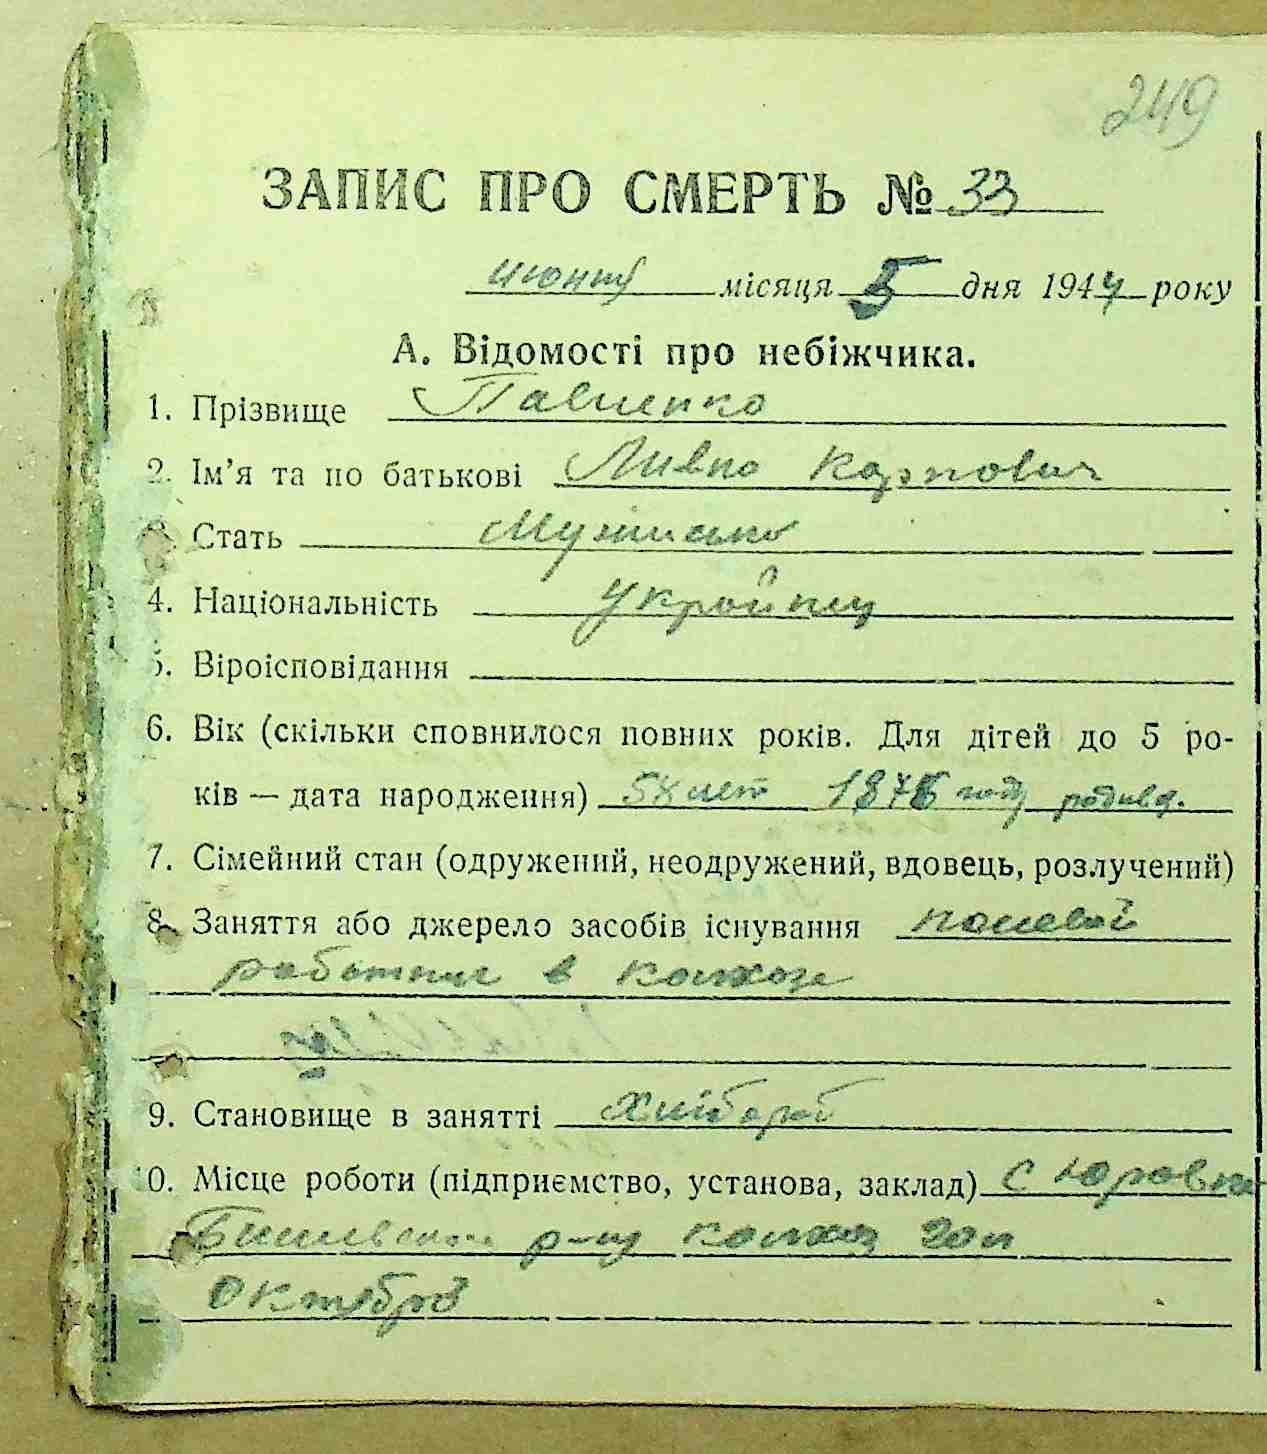 249
ЗАПИС ПРО СМЕРТЬ № 33
місяця 5 дня 1944 року
А. Відомості про небіжчика.
1. Прізвище Павленко
2. Ім'я та по батькові Карпович
Стать
4. Національність
5. Віроісповідання
6. Вік (скільки сповнилося повних років. Для дітей до 5 ро-
ків — дата народження) лет году
7. Сімейний стан (одружений, неодружений, вдовець, розлучений)
8. Заняття або джерело засобів існування полевой
в колхозе
9. Становище в занятті Хлібороб
0. Місце роботи (підприємство, установа, заклад) с Юровка
р-ну колхоз
Октября